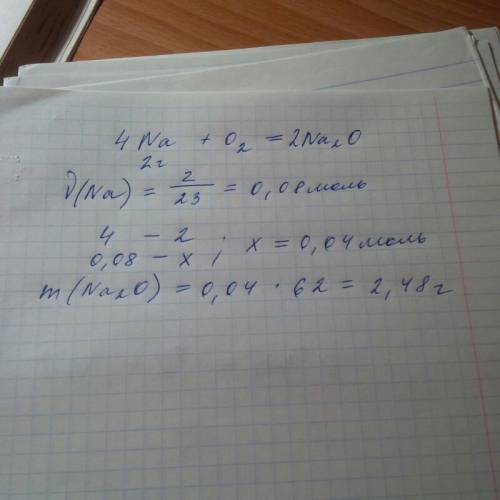 4Na + O₂ = 2Na₂O
2г
ν(Na) = 2/23 = 0,08 моль
4 - 2 ; x = 0,04 моль
0,08 - x ;
m(Na₂O) = 0,04 · 62 = 2,48 г